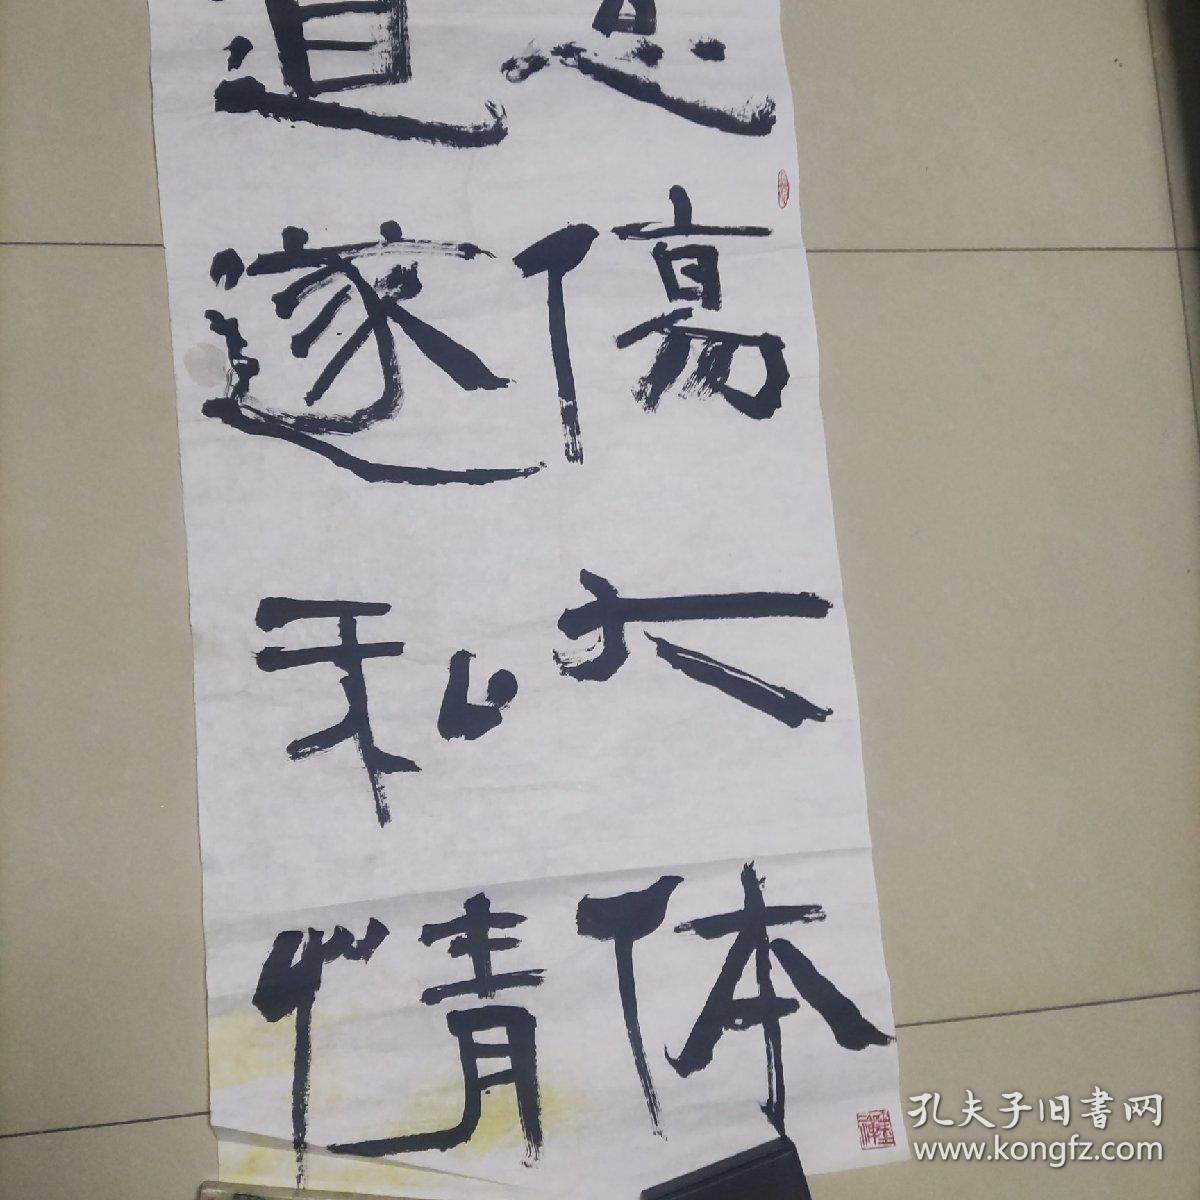 傷大体
道遂私情
孔夫子旧書网
www.kongfz.com